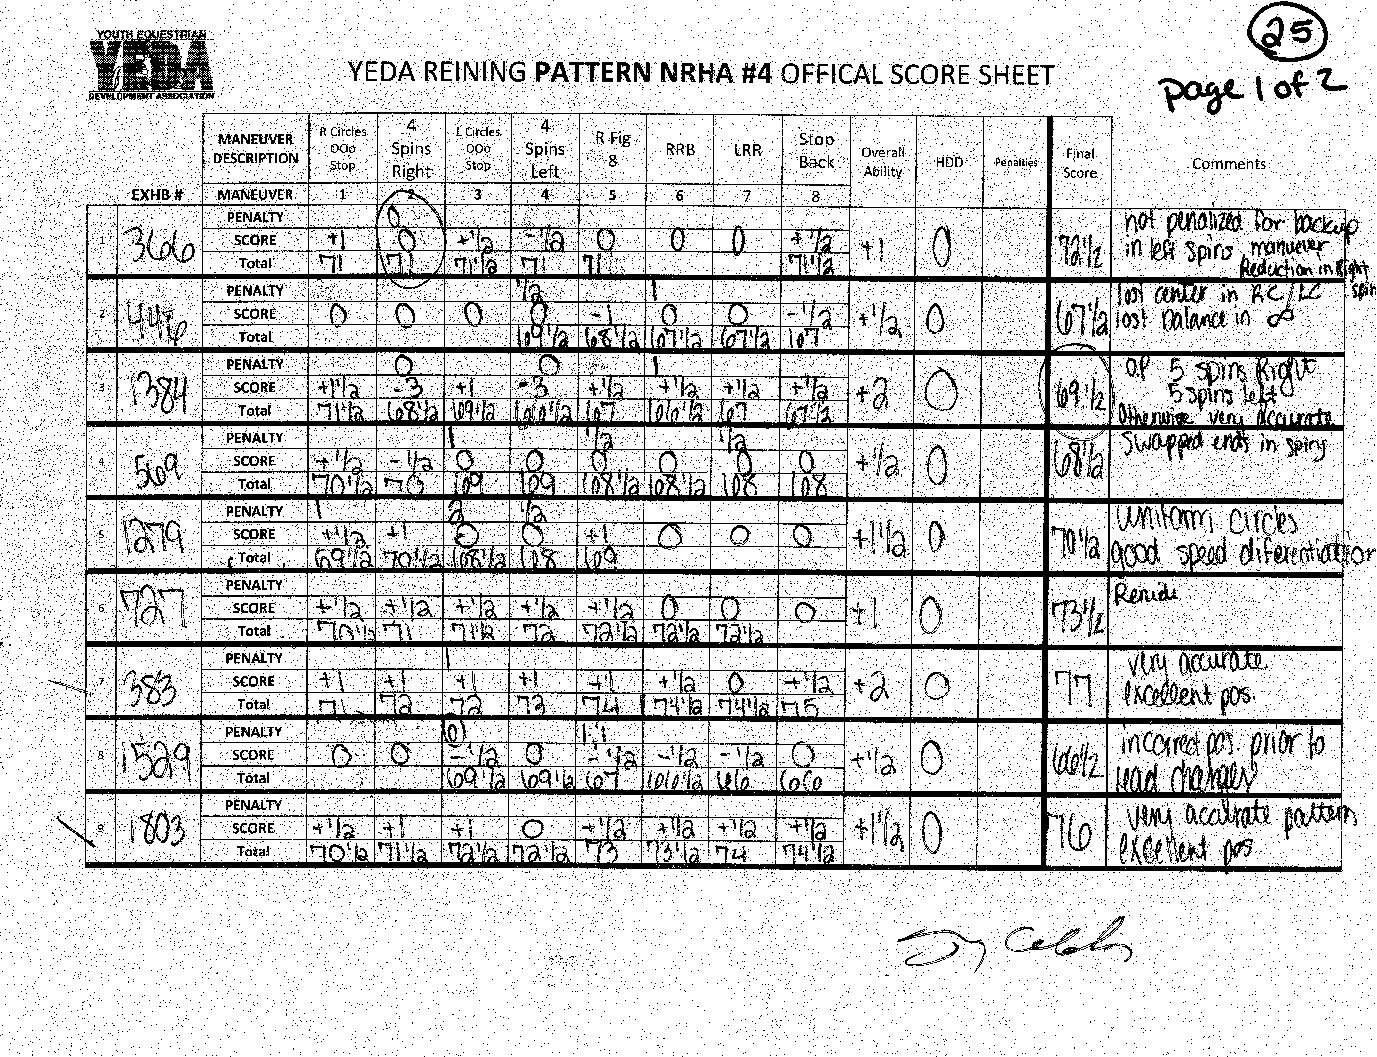 25
page 1 of 2
YOUTH EQUESTRIAN
YEDA
DEVELOPMENT ASSOCIATION
YEDA REINING PATTERN NRHA #4 OFFICAL SCORE SHEET
MANEUVER DESCRIPTION R Circles OOo Stop 4 Spins Right L Circles OOo Stop 4 Spins Left R Fig 8 RRB LRR Stop Back Overall Ability HDD Penalties Final Score Comments
EXHB # MANEUVER 1 2 3 4 5 6 7 8
1 366
PENALTY 0
SCORE +1 0 +1/2 -1/2 0 0 0 +1/2 +1 0 72 1/2
Total 71 71 71 1/2 71 71 71 1/2
not penalized for backup
in left spins maneuver
Reduction in Right spin
2 446
PENALTY 1/2 1
SCORE 0 0 0 0 -1 0 0 -1/2 +1/2 0 67 1/2
Total 69 1/2 68 1/2 67 1/2 67 1/2 67
lost center in RC/LC
lost balance in ∞
3 1384
PENALTY 0 0 1
SCORE +1 1/2 -3 +1 -3 +1/2 +1/2 +1/2 +1/2 +2 0 69 1/2
Total 71 1/2 68 1/2 69 1/2 66 1/2 67 66 1/2 67 67 1/2
OP 5 spins Right
5 spins left
Otherwise very accurate
4 569
PENALTY 1 1/2 1/2
SCORE +1/2 -1/2 0 0 0 0 0 0 +1/2 0 68 1/2
Total 70 1/2 70 69 69 68 1/2 68 1/2 68 68
Swapped ends in spins
5 1279
PENALTY 1 2 1/2
SCORE +1/2 +1 0 0 +1 0 0 0 +1 1/2 0 70 1/2
Total 69 1/2 70 1/2 68 1/2 68 69
Uniform circles
good speed diferentiation
6 727
PENALTY
SCORE +1/2 +1/2 +1/2 +1/2 +1/2 0 0 0 +1 0 73 1/2
Total 70 1/2 71 71 1/2 72 72 1/2 72 1/2 72 1/2
7 383
PENALTY 1
SCORE +1 +1 +1 +1 +1 +1/2 0 +1/2 +2 0 77
Total 71 72 72 73 74 74 1/2 74 1/2 75
very accurate
excellent pos.
8 1529
PENALTY 0 1 1
SCORE 0 0 -1/2 0 -1/2 -1/2 -1/2 0 +1/2 0 66 1/2
Total 69 1/2 69 1/2 67 66 1/2 66 66
incorrect pos. prior to
lead changes
9 1803
PENALTY
SCORE +1/2 +1 +1 0 +1/2 +1/2 +1/2 +1/2 +1 1/2 0 76
Total 70 1/2 71 1/2 72 1/2 72 1/2 73 73 1/2 74 74 1/2
very accurate pattern
excellent pos